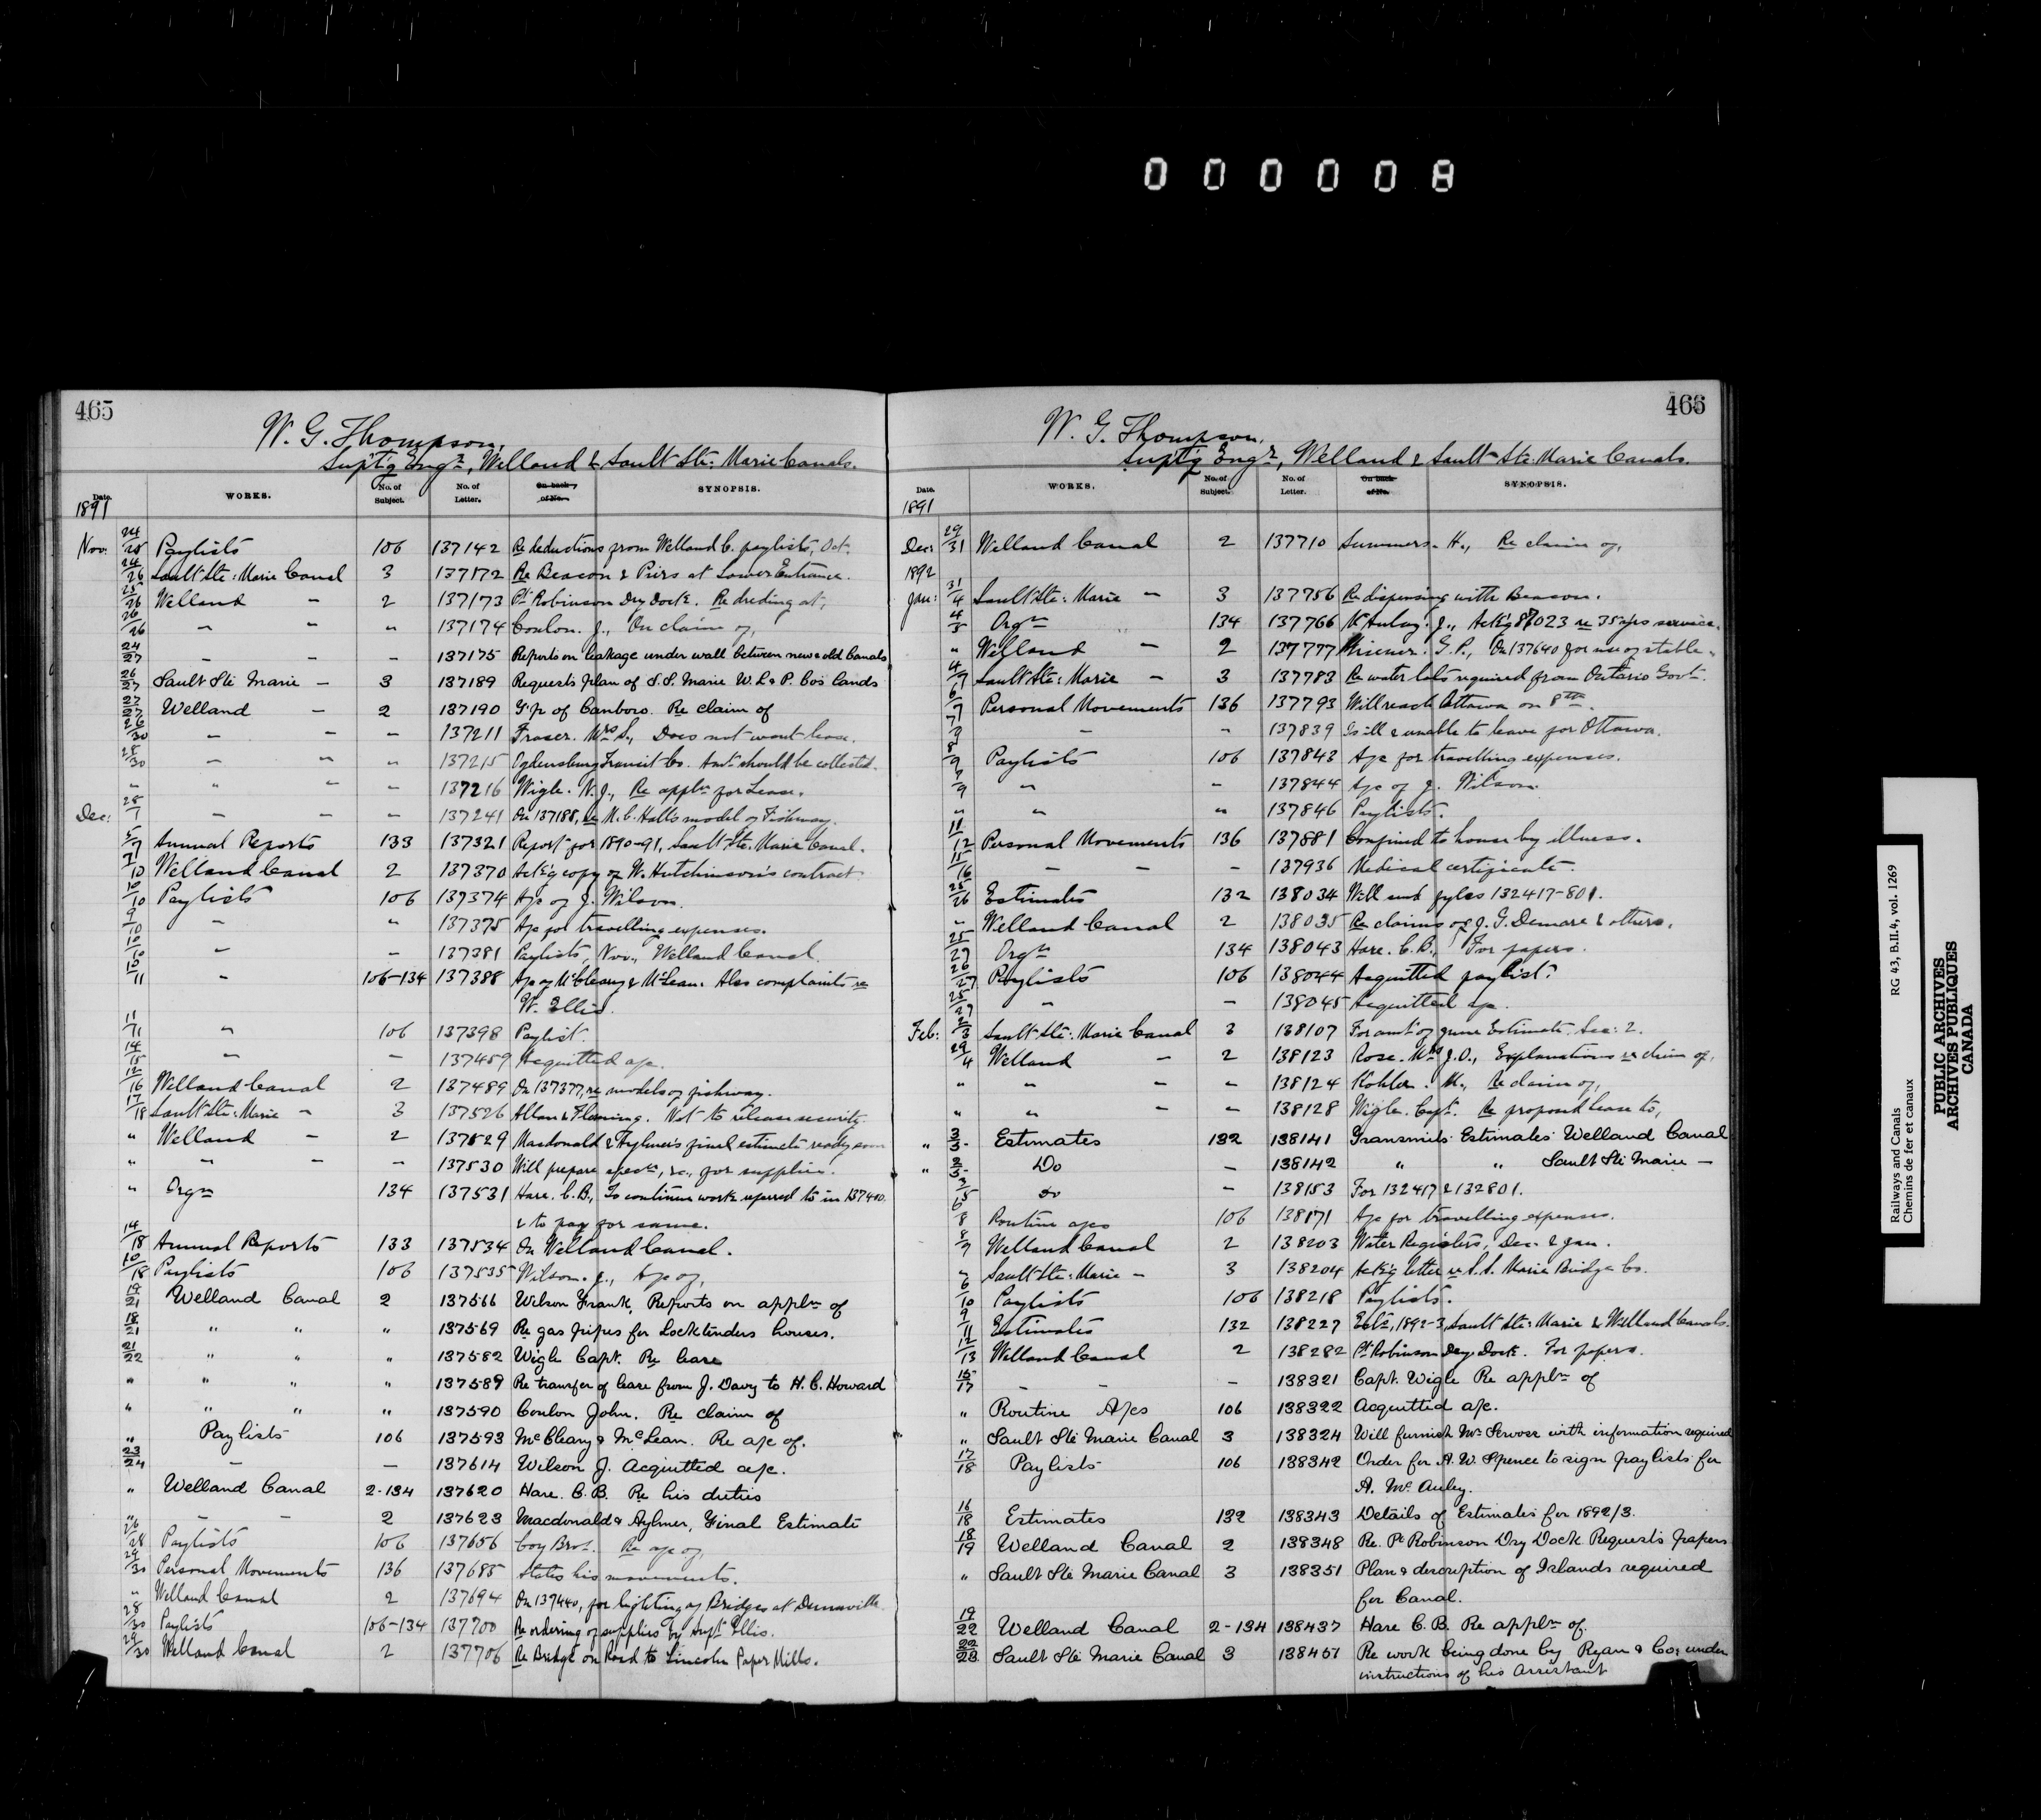 000008
465
W. G. Thompson,
Supt'g Engr, Welland & Sault Ste. Marie Canals.
Date. WORKS. No. of Subject. No. of Letter. On back of No. SYNOPSIS.
1891
Nov. 24/25 Paylists 106 137142 Re deductions from Welland C. paylists, Oct.
24/26 Sault Ste: Marie Canal 3 137172 Re Beacon & Piers at Lower Entrance.
25/26 Welland — 2 137173 Pt Robinson Dry Dock. Re dredging at,
26/26 — " " 137174 Conlon. J., On claim of,
24/27 — — — 137175 Reports on leakage under wall between new & old Canals
26/27 Sault Ste Marie — 3 137189 Requests plan of S.S. Marie W. L. & P. Co's lands
27/27 Welland — 2 137190 T'p of Canboro. Re claim of
26/30 — — — 137211 Fraser. Mrs S., Does not want lease.
28/30 — " " 137215 Ogdensburg Transit Co. Amt should be collected.
" " — — 137216 Wigle. N. J., Re appln for Lease.
Dec: 28/1 — — — 137241 On 137188, re N. C. Hall's model of Fishway.
5/7 Annual Reports 133 137321 Report for 1890-91, Sault Ste. Marie Canal.
7/10 Welland Canal 2 137370 Ack'g copy of W. Hutchinson's contract.
10/10 Paylists 106 137374 A/c of J. Wilson.
9/10 — " 137375 A/c for travelling expenses.
10/10 — — 137381 Paylists, Nov., Welland Canal.
10/11 — 106-134 137388 A/c of McCleary & McLean. Also complaints re
W. Ellis.
11/11 " 106 137398 Paylist.
14/15 — — 137459 Acquitted a/c.
12/16 Welland Canal 2 137489 On 137377, re models of fishway.
17/18 Sault Ste: Marie — 3 137526 Allan & Fleming. Not to release security.
" Welland — 2 137529 Macdonald & Aylmer's final estimate ready soon
" — — — 137530 Will prepare specns, &c., for supplies.
" Orgn 134 137531 Hare. C. B., To continue work referred to in 137400.
& to pay for same.
14/18 Annual Reports 133 137534 On Welland Canal.
10/18 Paylists 106 137535 Wilson. J., A/c of,
19/21 Welland Canal 2 137566 Wilson Frank, Reports on appln of
18/21 " " " 137569 Re gas pipes for Locktenders houses.
21/22 " " " 137582 Wigle Capt. Re lease
" " " " 137589 Re transfer of lease from J. Davy to H. C. Howard
" " " " 137590 Conlon John. Re claim of
" Paylists 106 137593 McCleary & McLean. Re a/c of.
23/24 — — 137614 Wilson J. Acquitted a/c.
" Welland Canal 2-134 137620 Hare. C. B. Re his duties
" — — 2 137623 Macdonald & Aylmer, Final Estimate
26/28 Paylists 106 137656 Coy Bros. Re a/c of,
29/30 Personal Movements 136 137685 States his movements.
" Welland Canal 2 137694 On 137440, for lighting of Bridges at Dunnville.
28/30 Paylists 106-134 137700 Re ordering of supplies by Supt Ellis.
29/30 Welland Canal 2 137706 Re Bridge on Road to Lincoln Paper Mills.
466
W. G. Thompson,
Supt'g Engr, Welland & Sault Ste. Marie Canals.
Date. WORKS. No. of Subject. No. of Letter. On back of No. SYNOPSIS.
1891
Dec: 29/31 Welland Canal 2 137710 Summers. H., Re claim of,
1892
Jan: 31/4 Sault Ste: Marie — 3 137756 Re dispensing with Beacon.
4/5 Orgn 134 137766 Ack'g 87023 re 35 yrs service.
" Welland — 2 137777 Misener. G. P., On 137640 for use of stable.
4/7 Sault Ste: Marie — 3 137783 Re water lots required from Ontario Govt.
6/7 Personal Movements 136 137793 Will reach Ottawa on 8th.
— " 137839 Is ill & unable to leave for Ottawa.
Paylists 106 137843 A/c for travelling expenses.
" — 137844 A/c of J. Wilson.
" " " 137846 Paylists.
11/12 Personal Movements 136 137881 Confined to house by illness.
15/16 — — — 137936 Medical certificate.
25/26 Estimates 132 138034 Will send fyles 132417-801.
" Welland Canal 2 138035 Re claims of J. G. Demare & others.
25/27 Orgn 134 138043 Hare. C. B., For papers.
26/27 Paylists 106 138044 Acquitted paylist.
25/27 " — 138045 Acquitted a/c.
Feb: 2/3 Sault Ste: Marie Canal 3 138107 For amt of June Estimate. Sec: 2.
29/4 Welland — 2 138123 Rose. Mrs J. O., Explanations re claim of,
" " — " 138124 Kohler. M., Re claim of,
" " — " 138128 Wigle. Capt. Re proposed lease to,
" 3/5 Estimates 132 138141 Transmits Estimates Welland Canal
" 3/5 Do — 138142 " " Sault Ste Marie —
3/5 Do — 138153 For 132417 & 132801.
6/8 Routine a/cs 106 138171 A/c for travelling expenses.
8/9 Welland Canal 2 138203 Water Registers, Dec. & Jan.
Sault Ste: Marie — 3 138204 Ack'g letter re S. S. Marie Bridge Co.
Paylists 106 138218 Paylists.
9/11 Estimates 132 138227 Ests, 1892-3, Sault Ste: Marie & Welland Canals.
12/13 Welland Canal 2 138282 Pt Robinson Dry Dock. For papers.
15/17 — — — 138321 Capt. Wigle Re appln of
" Routine A/cs 106 138322 Acquitted a/c.
" Sault Ste Marie Canal 3 138324 Will furnish Mr Servoss with information required
17/18 Paylists 106 138342 Order for A. W. Spence to sign paylists for
A. McAuley.
16/18 Estimates 132 138343 Details of Estimates for 1892/3.
18/19 Welland Canal 2 138348 Re. Pt Robinson Dry Dock Requests papers
" Sault Ste Marie Canal 3 138351 Plan & description of Islands required
for Canal.
19/22 Welland Canal 2-134 138437 Hare C. B. Re appln of.
22/23 Sault Ste Marie Canal 3 138451 Re work being done by Ryan & Co, under
instructions of his Assistant
Railways and Canals RG 43, B.II.4, vol. 1269
Chemins de fer et canaux
PUBLIC ARCHIVES
ARCHIVES PUBLIQUES
CANADA